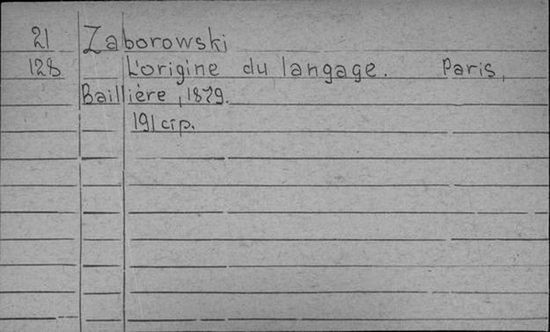 21 Zaborowski
128 L'origine du langage. Paris,
Baillière, 1879.
191 cтр.